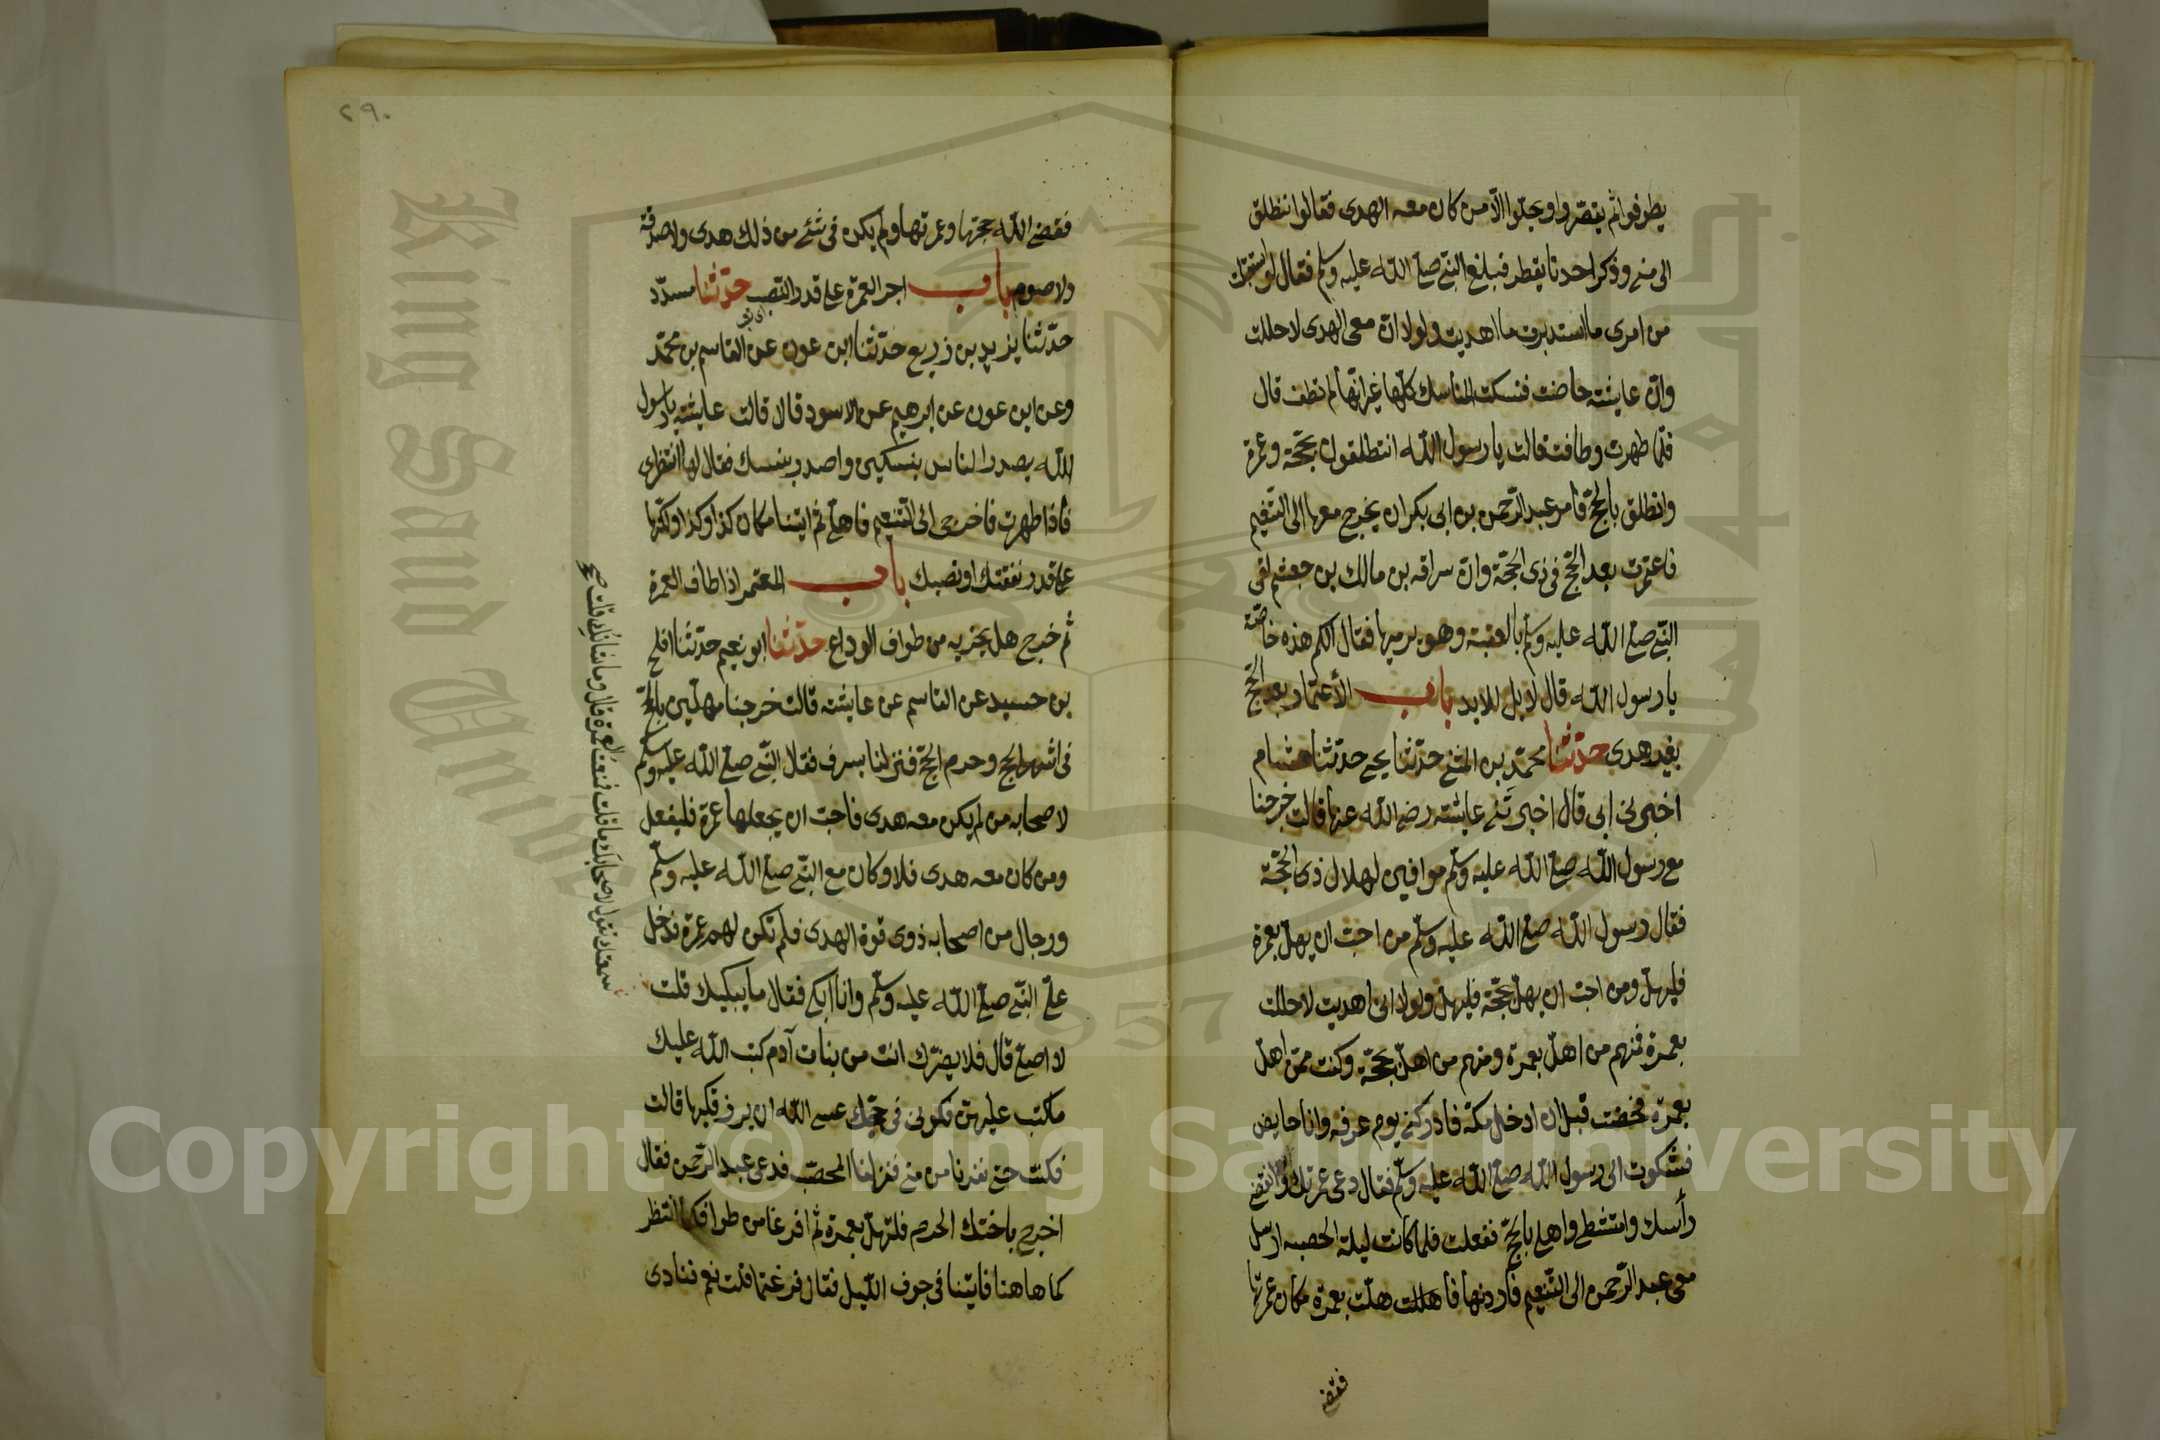 يطوفوا ثم يقصروا ويحلوا الّا من كان معه الهدى فقالوا ننطلق
الى منى وذكر احدنا يقطر فبلغ النبى صلى الله عليه وسلم فقال لو استقبلت
من امرى ما استدبرت ما اهديت ولولا ان معى الهدى لاحللت
وانّ عايشة حاضت فنسكت المناسك كلها غير انها لم تطف قال
فلما طهرت وطافت قالت يا رسول الله انتطلقون بحجة وعمرة
وانطلق بالحج فامر عبد الرحمن بن ابى بكر ان يخرج معها الى التنعيم
فاعتمرت بعد الحج فى ذى الحجة وانّ سراقة بن مالك بن جعشم لقى
النبى صلى الله عليه وسلم بالعقبة وهو يرميها فقال الكم هذه خاصة
يا رسول الله قال لا بل للابد باب الأعتمار بعد الحج
بغير هدى حدثنا محمد بن المثنى حدثنا يحى حدثنا هشام
اخبرنى ابى قال اخبرتنى عايشة رضى الله عنها قالت خرجنا
مع رسول الله صلى الله عليه وسلم موافين لهلال ذى الحجة
فقال رسول الله صلى الله عليه وسلم من احب ان يهل بعمرة
فليهل ومن احب ان يهل بحجة فليهل ولولا انى اهديت لاحللت
بعمرة فمنهم من اهل بعمرة ومنهم من اهل بحجة وكنت ممن اهل
بعمرة فحضت قبل ان ادخل مكة فادركنى يوم عرفه وانا حايض
فشكوت الى رسول الله صلى الله عليه وسلم فقال دعى عمرتك وانقضى
رأسك وامتشطى واهلى بالحج ففعلت فلما كانت ليلة الحصبه ارسل
معى عبد الرحمن الى التنعيم فأردفها فاهللت بعمرة مكان عمرتها
فقضى
٢٩٠
فقضى الله حجتها وعمرتها ولم يكن فى شئ من ذلك هدى ولا صدقة
ولا صوم باب اجر العمرة على قدر النصب حدثنا مسدّد
حدثنا يزيد بن زريع حدثنا ابن عون عن القاسم بن محمد
وعن ابن عون عن ابرهيم عن الاسود قالا قالت عايشة يا رسول
الله يصدر الناس بنسكين واصدر بنسك فقال لها انتظرى
فاذا طهرت فاخرجى الى التنعيم فاهلى ثم ايتنا مكان كذا وكذا ولكنها
على قدر نفقتك او نصبك باب المعتمر اذا طاف العمرة
ثم خرج هل يجزيه من طواف الوداع حدثنا ابو نعيم حدثنا افلح
بن حميد عن القاسم عن عايشة قالت خرجنا مهلين بالحج
فى اشهر الحج وحرم الحج فنزلنا بسرف فقال النبى صلى الله عليه وسلم
لاصحابه من لم يكن معه هدى فاحب ان يجعلها عمرة فليفعل
ومن كان معه هدى فلا وكان مع النبى صلى الله عليه وسلم
ورجال من اصحابه ذوى قوة الهدى فلم تكن لهم عمرة فدخل
على النبى صلى الله عليه وسلم وانا ابكى فقال ما يبكيك قلت
لا اصلى قال فلا يضرك انت من بنات آدم كتب الله عليك
ما كتب عليهن فكونى فى حجتك عسى الله ان يرزقكيها قالت
فكنت حتى نفرنا من منى فنزلنا المحصب فدعى عبد الرحمن فقال
اخرج باختك الحرم فلتهل بعمرة ثم افرغا من طوافكما انتظر
كما هاهنا فاتينا فى جوف الليل فقال فرغتما قلت نعم فنادى
سمعتك تقول لاصحابك ما قلت فمنعت العمرة قال وما شانك قلت صح
King Saud University
1957
Copyright © King Saud University